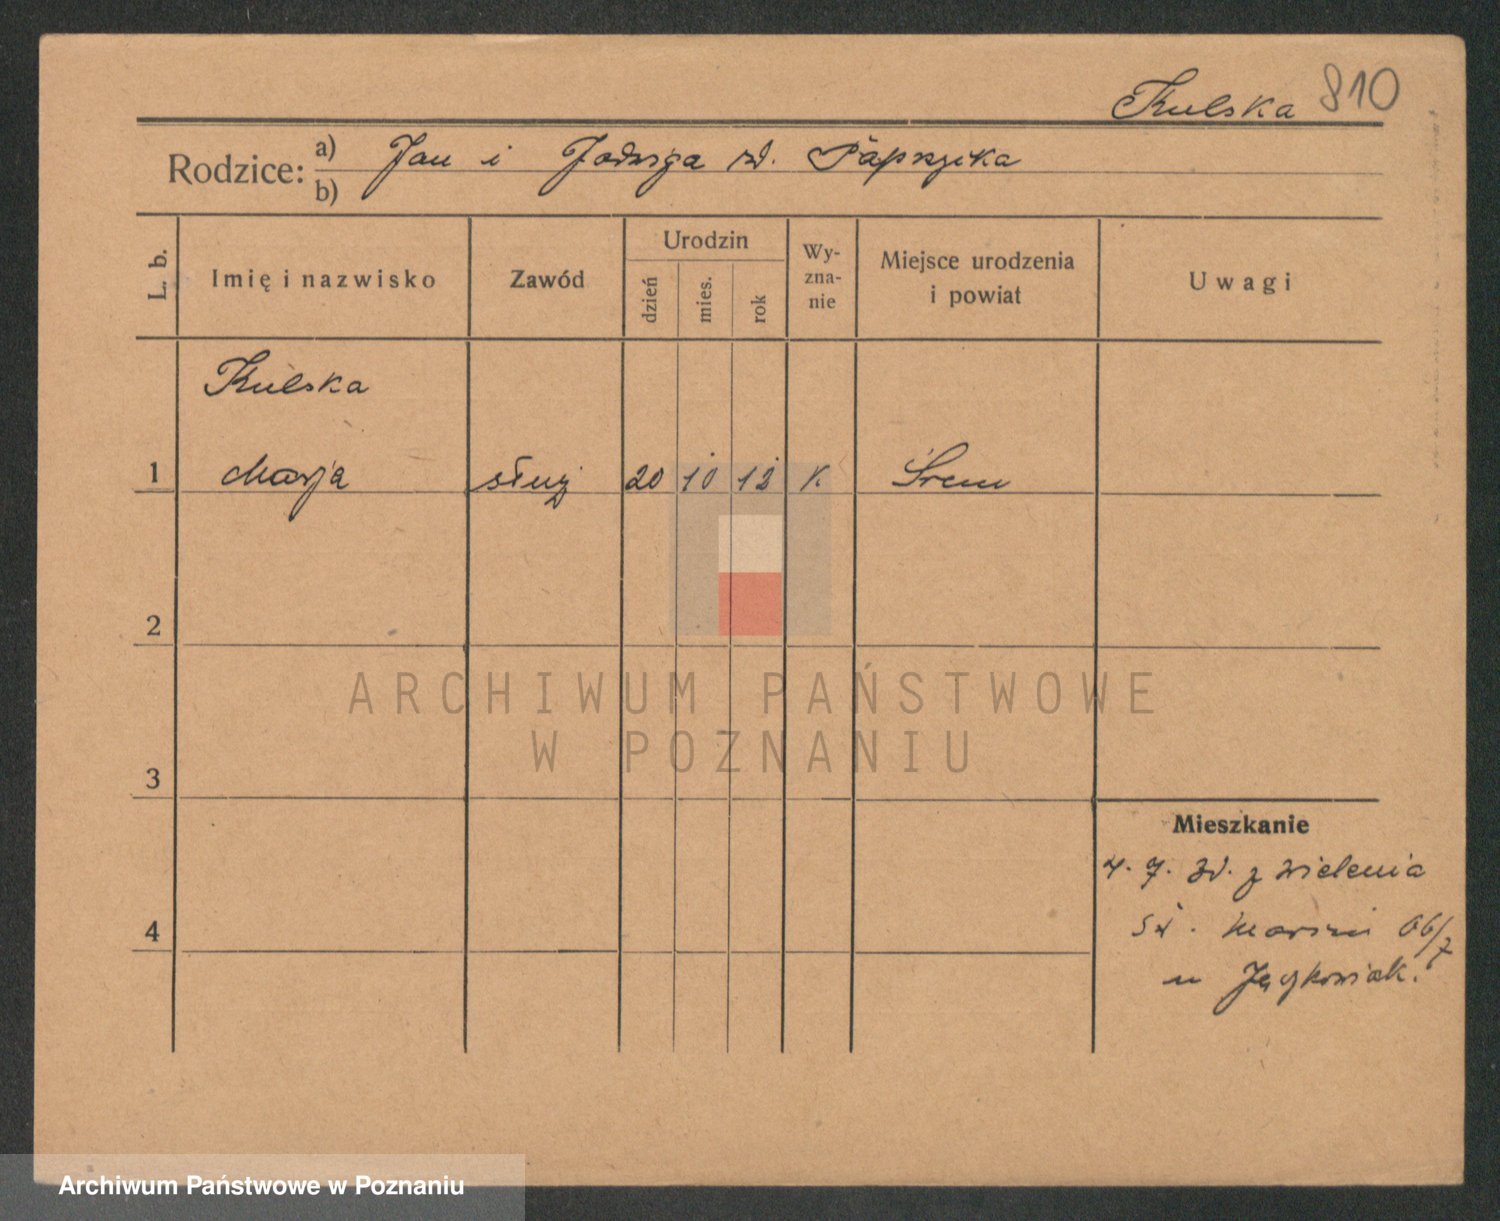 Kulska 810
Rodzice: a) Jan i Jadwiga
b)
L. b.
Imię i nazwisko
Zawód
Urodzin
dzień
mies.
rok
Wy-
zna-
nie
Miejsce urodzenia
i powiat
Uwagi
Kulska
1 Marja służ 20 10 12 K Śrem
2
3
4
Mieszkanie
4. 7. z
Marcin 66/7
u
ARCHIWUM PAŃSTWOWE
W POZNANIU
Archiwum Państwowe w Poznaniu